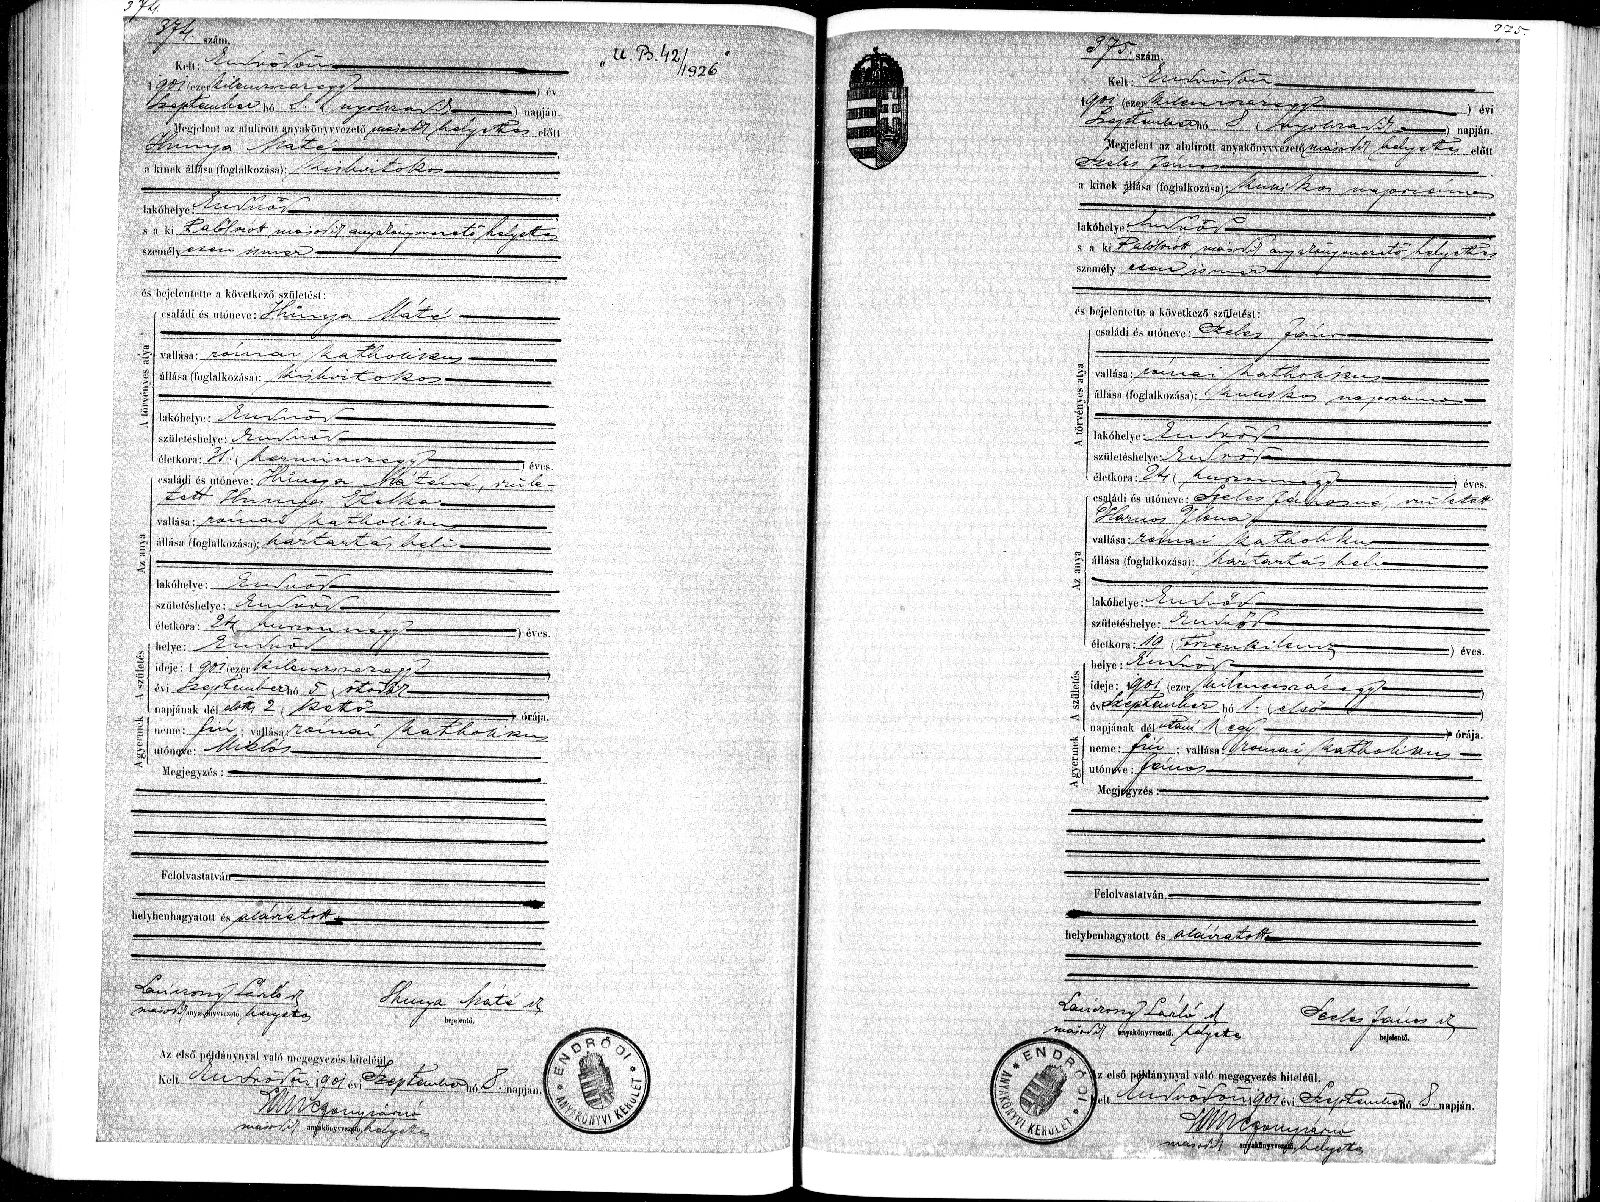 374.
374. szám.
Kelt: Endrődön
1901 (ezerkilenczszázegy) évi
Szeptember hó 8. (nyolczadik) napján.
Megjelent az alulirott anyakönyvvezető másodk helyettes előtt
Hunya Máté
a kinek állása (foglalkozása): kisbirtokos
lakóhelye: Endrőd
s a ki alólirott másodk anyakönyvvezető helyettes
személyesen ismer
és bejelentette a következő születést:
A törvényes atya
családi és utóneve: Hunya Máté
vallása: római katholikus
állása (foglalkozása): kisbirtokos
lakóhelye: Endrőd
születéshelye: Endrőd
életkora: 31 (harminczegy) éves.
Az anya
családi és utóneve: Hunya Máténé, szüle-
tett Hunya Etelka
vallása: római katholikus
állása (foglalkozása): háztartásbeli
lakóhelye: Endrőd
születéshelye: Endrőd
életkora: 24 (huszonnégy) éves.
A születés
helye: Endrőd
ideje: 1901 (ezerkilenczszázegy)
évi Szeptember hó 5 (ötödik)
napjának dél előtti 2 (kettő) órája.
A gyermek
neme: fiú; vallása: római katholikus
utóneve: Miklós
Megjegyzés:
Felolvastatván
helybenhagyatott és aláíratott
László
másodk anyakönyvvezető helyettes
Hunya Máté
bejelentő.
Az első példánynyal való megegyezés hiteléül.
Kelt Endrődön 1901 évi Szeptember hó 8. napján.
másodk anyakönyvvezető helyettes
ENDRŐDI ANYAKÖNYVI KERÜLET
„U. B. 42/1926"
375
375. szám.
Kelt: Endrődön
1901 (ezerkilenczszázegy) évi
Szeptember hó 8. (nyolczadik) napján.
Megjelent az alulirott anyakönyvvezető másodk helyettes előtt
Szeles János
a kinek állása (foglalkozása): kubikos napszámos
lakóhelye: Endrőd
s a ki alólirott másodk anyakönyvvezető helyettes
személyesen ismer
és bejelentette a következő születést:
A törvényes atya
családi és utóneve: Szeles János
vallása: római katholikus
állása (foglalkozása): kubikos napszámos
lakóhelye: Endrőd
születéshelye: Endrőd
életkora: 24 (huszonnégy) éves.
Az anya
családi és utóneve: Szeles Jánosné, született
Harnos Ilona
vallása: római katholikus
állása (foglalkozása): háztartásbeli
lakóhelye: Endrőd
születéshelye: Endrőd
életkora: 19 (tizenkilencz) éves.
A születés
helye: Endrőd
ideje: 1901 (ezerkilenczszázegy)
évi Szeptember hó 1. (első)
napjának dél utáni 1 (egy) órája.
A gyermek
neme: fiú; vallása: római katholikus
utóneve: János
Megjegyzés:
Felolvastatván
helybenhagyatott és aláíratott
László
másodk anyakönyvvezető helyettes
Szeles János
bejelentő.
Az első példánynyal való megegyezés hiteléül.
Kelt Endrődön 1901 évi Szeptember hó 8. napján.
másodk anyakönyvvezető helyettes
ENDRŐDI ANYAKÖNYVI KERÜLET